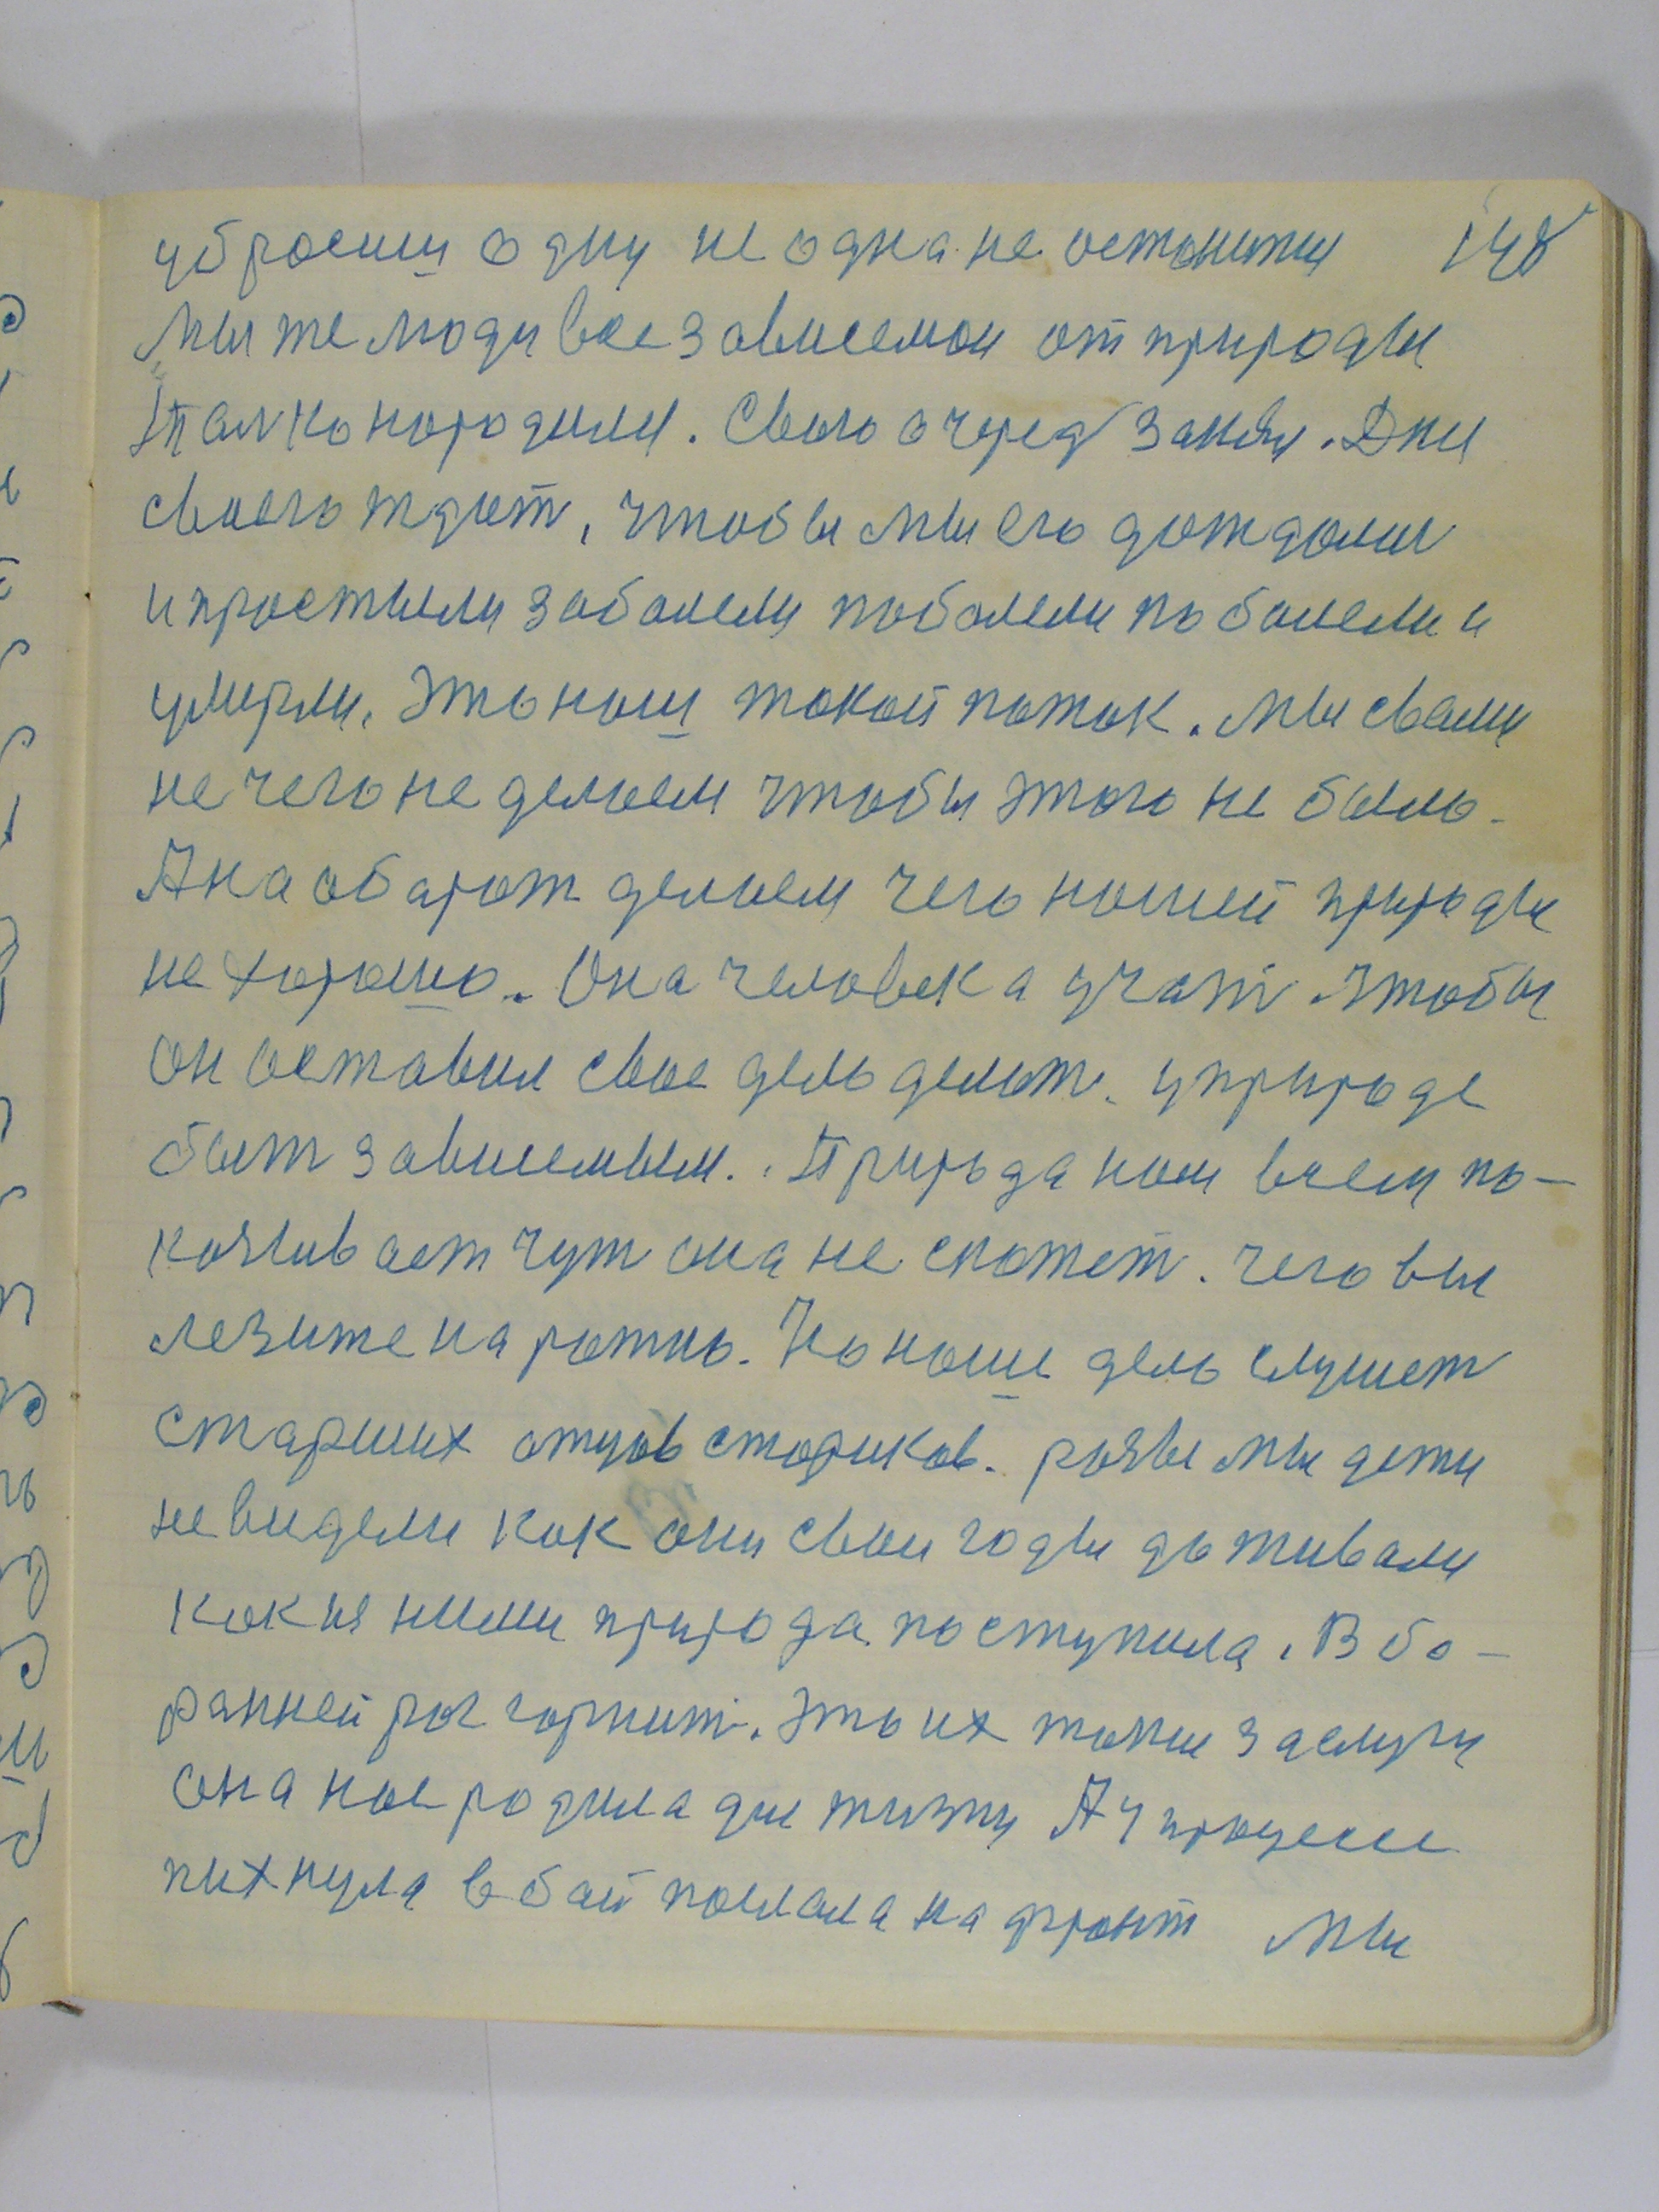 убросиш одну не одна не останитця 148
Мы же люди все зависемои от природы
Толко народили. Свою очеред заняли. Дни
своего ждют, чтобы мы его дождали
и простыли заболели поболели поболели и
умерли. Это наш такой поток. Мы свами
не чего не делаем чтобы этого не было.
А на оборот делаем чего нашей природы
не хорошо. Она человека учат. чтобы
он оставил свое дело делат. у природе
быт зависемым. Природа нам всем по-
козывает чут она не скажет. чего вы
лезите на рожно. Но наше дело слушет
старших отцов стариков. розвы мы дети
не видели как они свои годы доживали
как из ними природа поступила. В ба-
ранней рог горнит. Это их такие заслуги
она нас родила для жизни А у процессе
пихнула в бай послала на фронт Мы